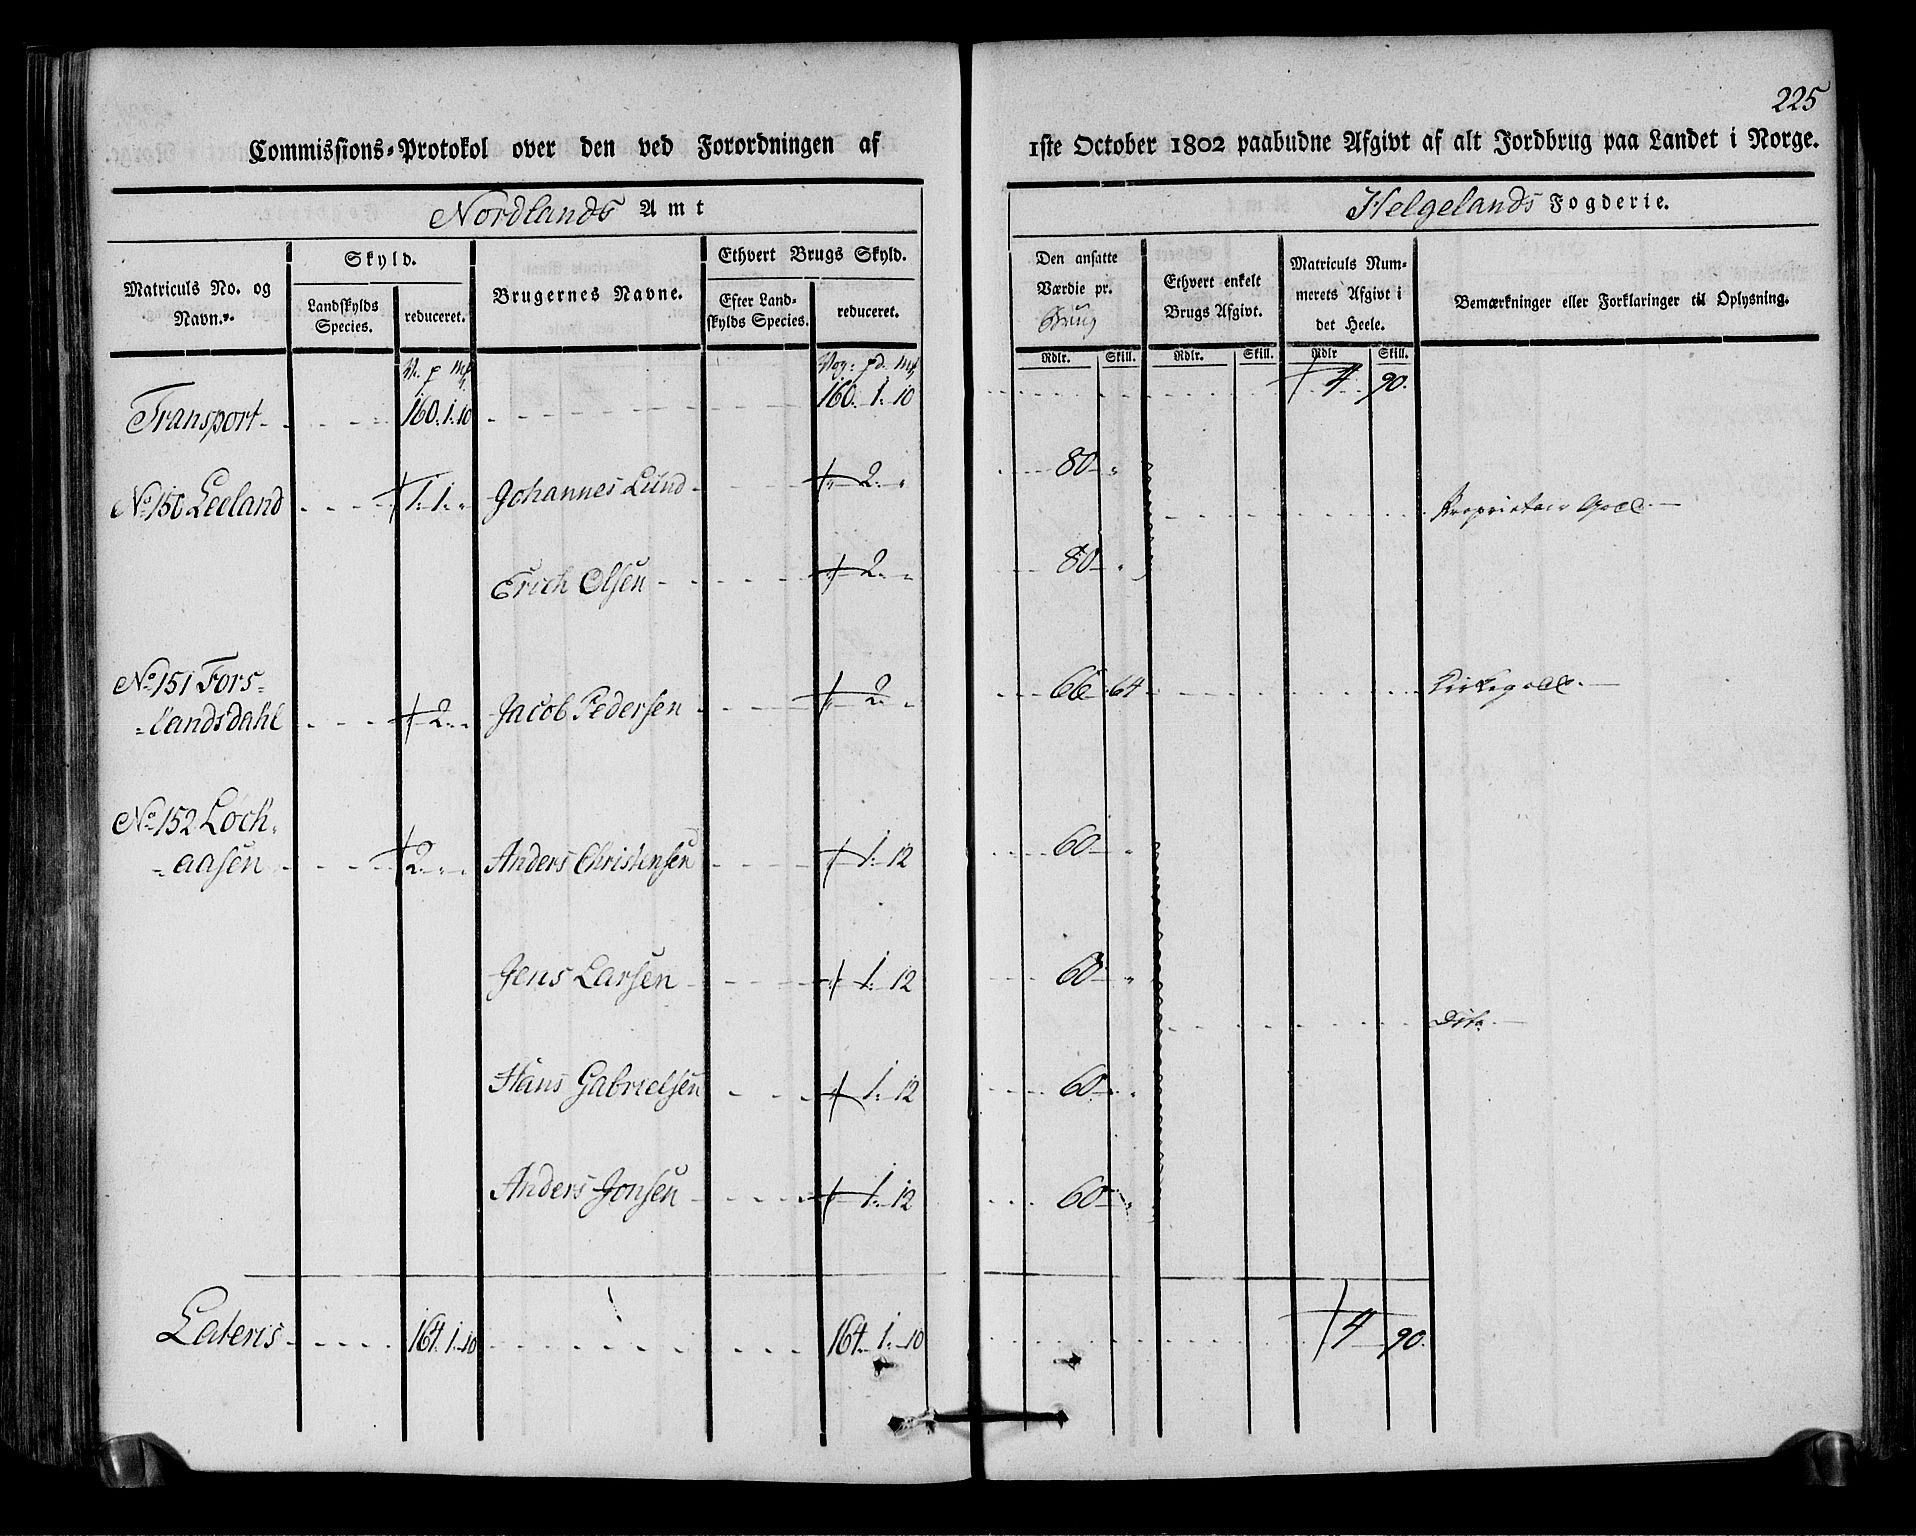 225
Commissions-Protokol over den ved Forordningen af 1ste October 1802 paabudne Afgivt af alt Jordbrug paa Landet i Norge.
Nordlands Amt
Helgelands Fogderie.
Matriculs No. og Navn.
Skyld.
Landskylds Species.
reduceret.
Brugernes Navne.
Ethvert Brugs Skyld.
Efter Landskylds Species.
reduceret.
Den ansatte Værdie pr. Brug
Ethvert enkelt Brugs Afgivt.
Matriculs Nummerets Afgivt i det Heele.
Bemærkninger eller Forklaringer til Oplysning.
Rdlr. Skill. Rdlr. Skill. Rdlr Skill.
V. p Mk
Vog: pd. Mk
Transport 160. 1. 10 160. 1. 10 4 90.
No 150 Leeland 1. 1. " Johannes Lund 2. " 80 " Proprietair Godс
Erich Olsen 2. " 80 "
No 151 Fors=
=landsdahl 2. " Jacob Pedersen 2. " 66 64 Kirkegods.
No 152 Loch=
=aasen 2. " " Anders Christensen 1. 12 60 "
Jens Larsen 1. 12 60 "
Dito
Hans Gabrielsen 1. 12 60 "
Anders Jonsen 1. 12 60 "
Lateris 164. 1. 10 164. 1. 10 4 90.